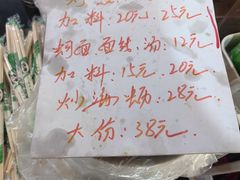 加料:20元.25元.
蚵面 面线.汤:12元
加料:15元.20元.
炒海蛎:28元.
大份:38元.